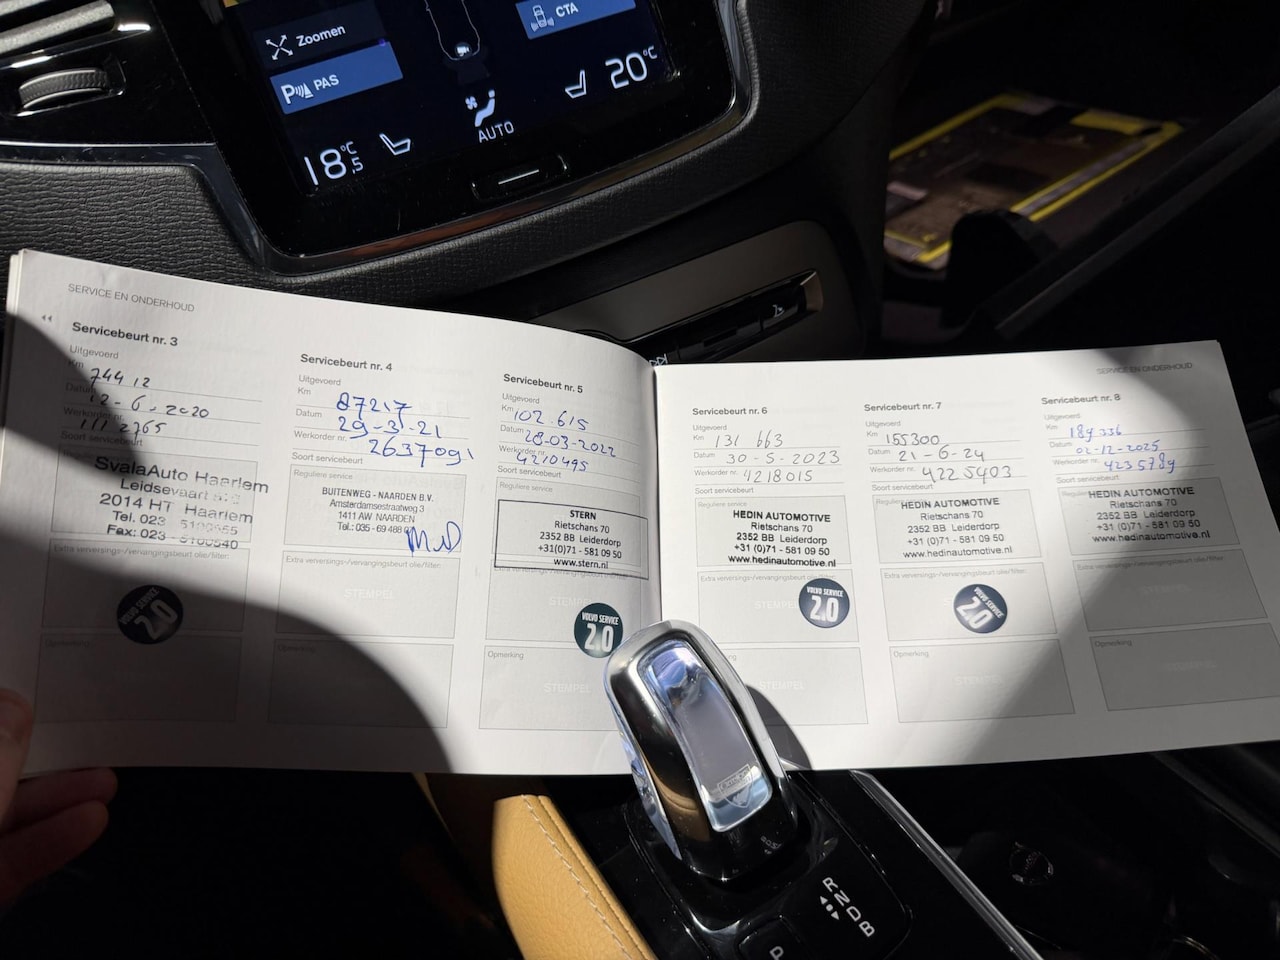 Zoomen
PAS
CTA
18,5°C
AUTO
20°C
SERVICE EN ONDERHOUD
Servicebeurt nr. 3
Uitgevoerd
Km 74412
Datum 12-6-2020
Werkorder nr.
Soort servicebeurt
Reguliere service
SvalaAuto Haarlem
Leidsevaart
2014 HT Haarlem
Tel. 023
Fax: 023 -
Extra verversings-/vervangingsbeurt olie/filter:
VOLVO SERVICE
2.0
Opmerking
Servicebeurt nr. 4
Uitgevoerd
Km 87217
Datum 29-3-21
Werkorder nr. 2637091
Soort servicebeurt
Reguliere service
BUITENWEG - NAARDEN B.V.
Amsterdamsestraatweg 3
1411 AW NAARDEN
Tel.: 035 - 69 488
Extra verversings-/vervangingsbeurt olie/filter:
STEMPEL
Opmerking
STEMPEL
Servicebeurt nr. 5
Uitgevoerd
Km 102.615
Datum 28-03-2022
Werkorder nr. 4210495
Soort servicebeurt
Reguliere service
STERN
Rietschans 70
2352 BB Leiderdorp
+31(0)71 - 581 09 50
www.stern.nl
VOLVO SERVICE
2.0
Opmerking
STEMPEL
SERVICE EN ONDERHOUD
Servicebeurt nr. 6
Uitgevoerd
Km 131 663
Datum 30-5-2023
Werkorder nr. 4218015
Soort servicebeurt
Reguliere service
HEDIN AUTOMOTIVE
Rietschans 70
2352 BB Leiderdorp
+31 (0)71 - 581 09 50
www.hedinautomotive.nl
Extra verversings-/vervangingsbeurt olie/filter:
VOLVO SERVICE
2.0
STEMPEL
Servicebeurt nr. 7
Uitgevoerd
Km 155300
Datum 21-6-24
Werkorder nr. 4225403
Soort servicebeurt
HEDIN AUTOMOTIVE
Rietschans 70
2352 BB Leiderdorp
+31 (0)71 - 581 09 50
www.hedinautomotive.nl
Extra verversings-/vervangingsbeurt olie/filter:
VOLVO SERVICE
2.0
Opmerking
STEMPEL
Servicebeurt nr. 8
Uitgevoerd
Km 189336
Datum 02-12-2025
Werkorder nr. 4235789
Soort servicebeurt
HEDIN AUTOMOTIVE
Rietschans 70
2352 BB Leiderdorp
+31 (0)71 - 581 09 50
www.hedinautomotive.nl
Extra verversings-/vervangingsbeurt olie/filter:
STEMPEL
Opmerking
STEMPEL
R
N
D
B
P